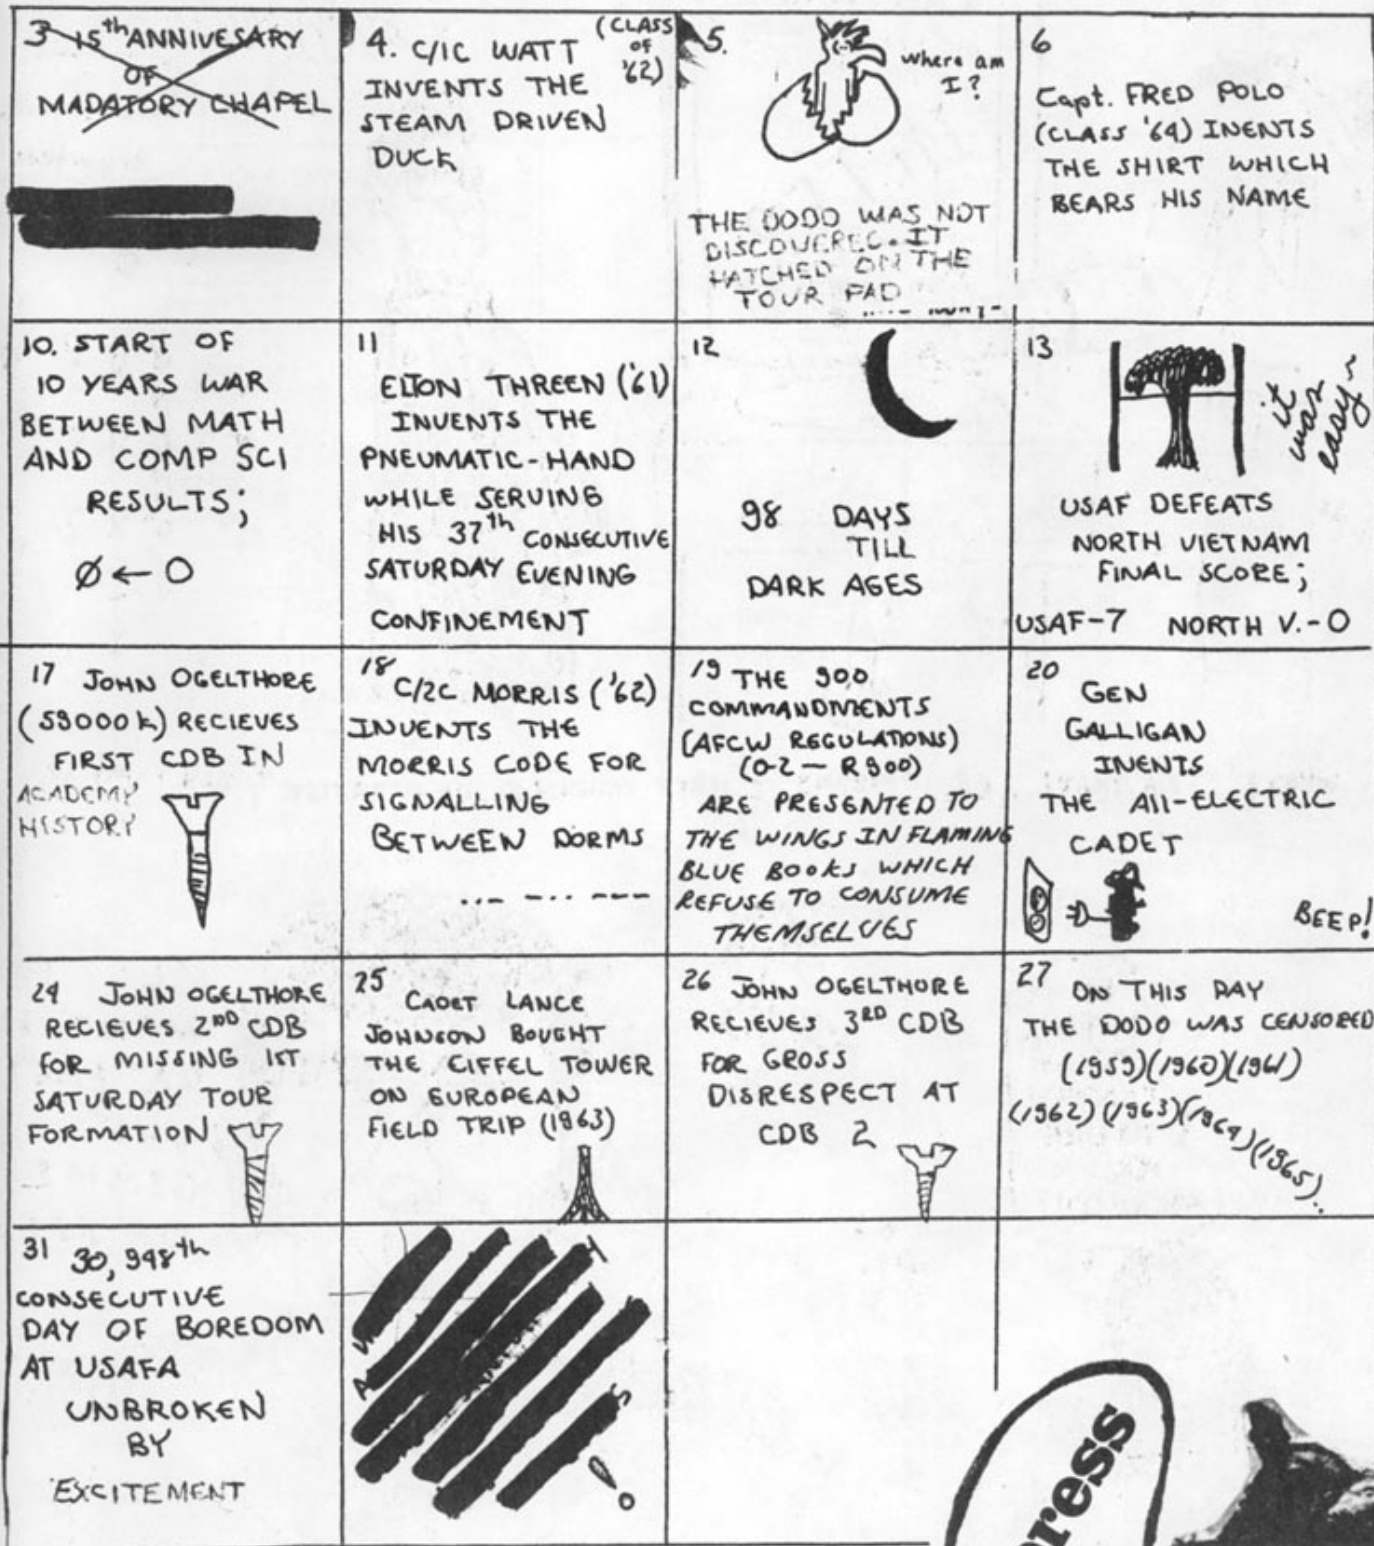 3 15th ANNIVESARY
OF
MADATORY CHAPEL
4. C/1C WATT (CLASS OF '62)
INVENTS THE
STEAM DRIVEN
DUCK
5.
where am
I?
THE DODO WAS NOT
DISCOVERED. IT
HATCHED ON THE
TOUR PAD
6
Capt. FRED POLO
(CLASS '64) INENTS
THE SHIRT WHICH
BEARS HIS NAME
10. START OF
10 YEARS WAR
BETWEEN MATH
AND COMP SCI
RESULTS;
Ø ← O
11
ELTON THREEN ('61)
INVENTS THE
PNEUMATIC-HAND
WHILE SERVING
HIS 37th CONSECUTIVE
SATURDAY EVENING
CONFINEMENT
12
98 DAYS
TILL
DARK AGES
13
it
was
easy~
USAF DEFEATS
NORTH VIETNAM
FINAL SCORE;
USAF-7 NORTH V.-0
17 JOHN OGELTHORE
(59000k) RECIEVES
FIRST CDB IN
ACADEMY
HISTORY
18 C/2C MORRIS ('62)
INVENTS THE
MORRIS CODE FOR
SIGNALLING
BETWEEN DORMS
..- -.. ---
19 THE 900
COMMANDMENTS
(AFCW REGULATIONS)
(0-2 — R900)
ARE PRESENTED TO
THE WINGS IN FLAMING
BLUE BOOKS WHICH
REFUSE TO CONSUME
THEMSELVES
20
GEN
GALLIGAN
INENTS
THE All-ELECTRIC
CADET
BEEP!
24 JOHN OGELTHORE
RECIEVES 2ND CDB
FOR MISSING 1ST
SATURDAY TOUR
FORMATION
25
CADET LANCE
JOHNSON BOUGHT
THE EIFFEL TOWER
ON EUROPEAN
FIELD TRIP (1963)
26 JOHN OGELTHORE
RECIEVES 3RD CDB
FOR GROSS
DISRESPECT AT
CDB 2
27 ON THIS DAY
THE DODO WAS CENSORED
(1959)(1960)(1961)
(1962)(1963)(1964)(1965)...
31 30,948th
CONSECUTIVE
DAY OF BOREDOM
AT USAFA
UNBROKEN
BY
EXCITEMENT
ress